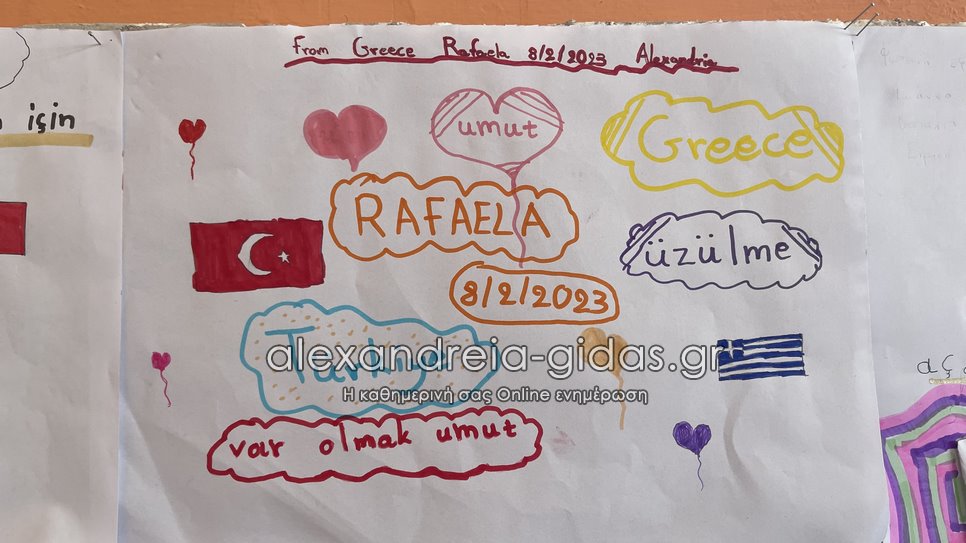 From Greece Rafaela 8/2/2023 Alexandria
için
umut
Greece
RAFAELA
üzülme
8/2/2023
alexandreia-gidas.gr
Η καθημερινή σας Online ενημέρωση
var olmak umut